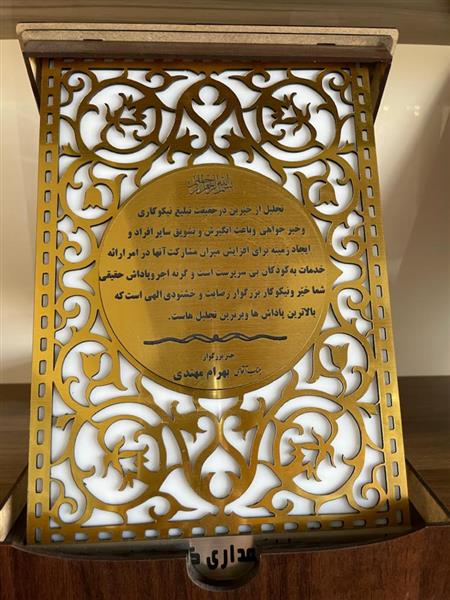 بسم الله الرحمن الرحیم
تجلیل از خیرین در حقیقت تبلیغ نیکوکاری
و خیر خواهی وباعث انگیزش و تشویق سایر افراد و
ایجاد زمینه برای افزایش میزان مشارکت آنها در امر ارائه
خدمات به کودکان بی سرپرست است و گرنه اجر وپاداش حقیقی
شما خیّر ونیکوکار بزرگوار رضایت و خشنودی الهی است که
بالاترین پاداش ها وبرترین تجلیل هاست.
خیر بزرگوار
جناب آقای بهرام مهندی
مداری